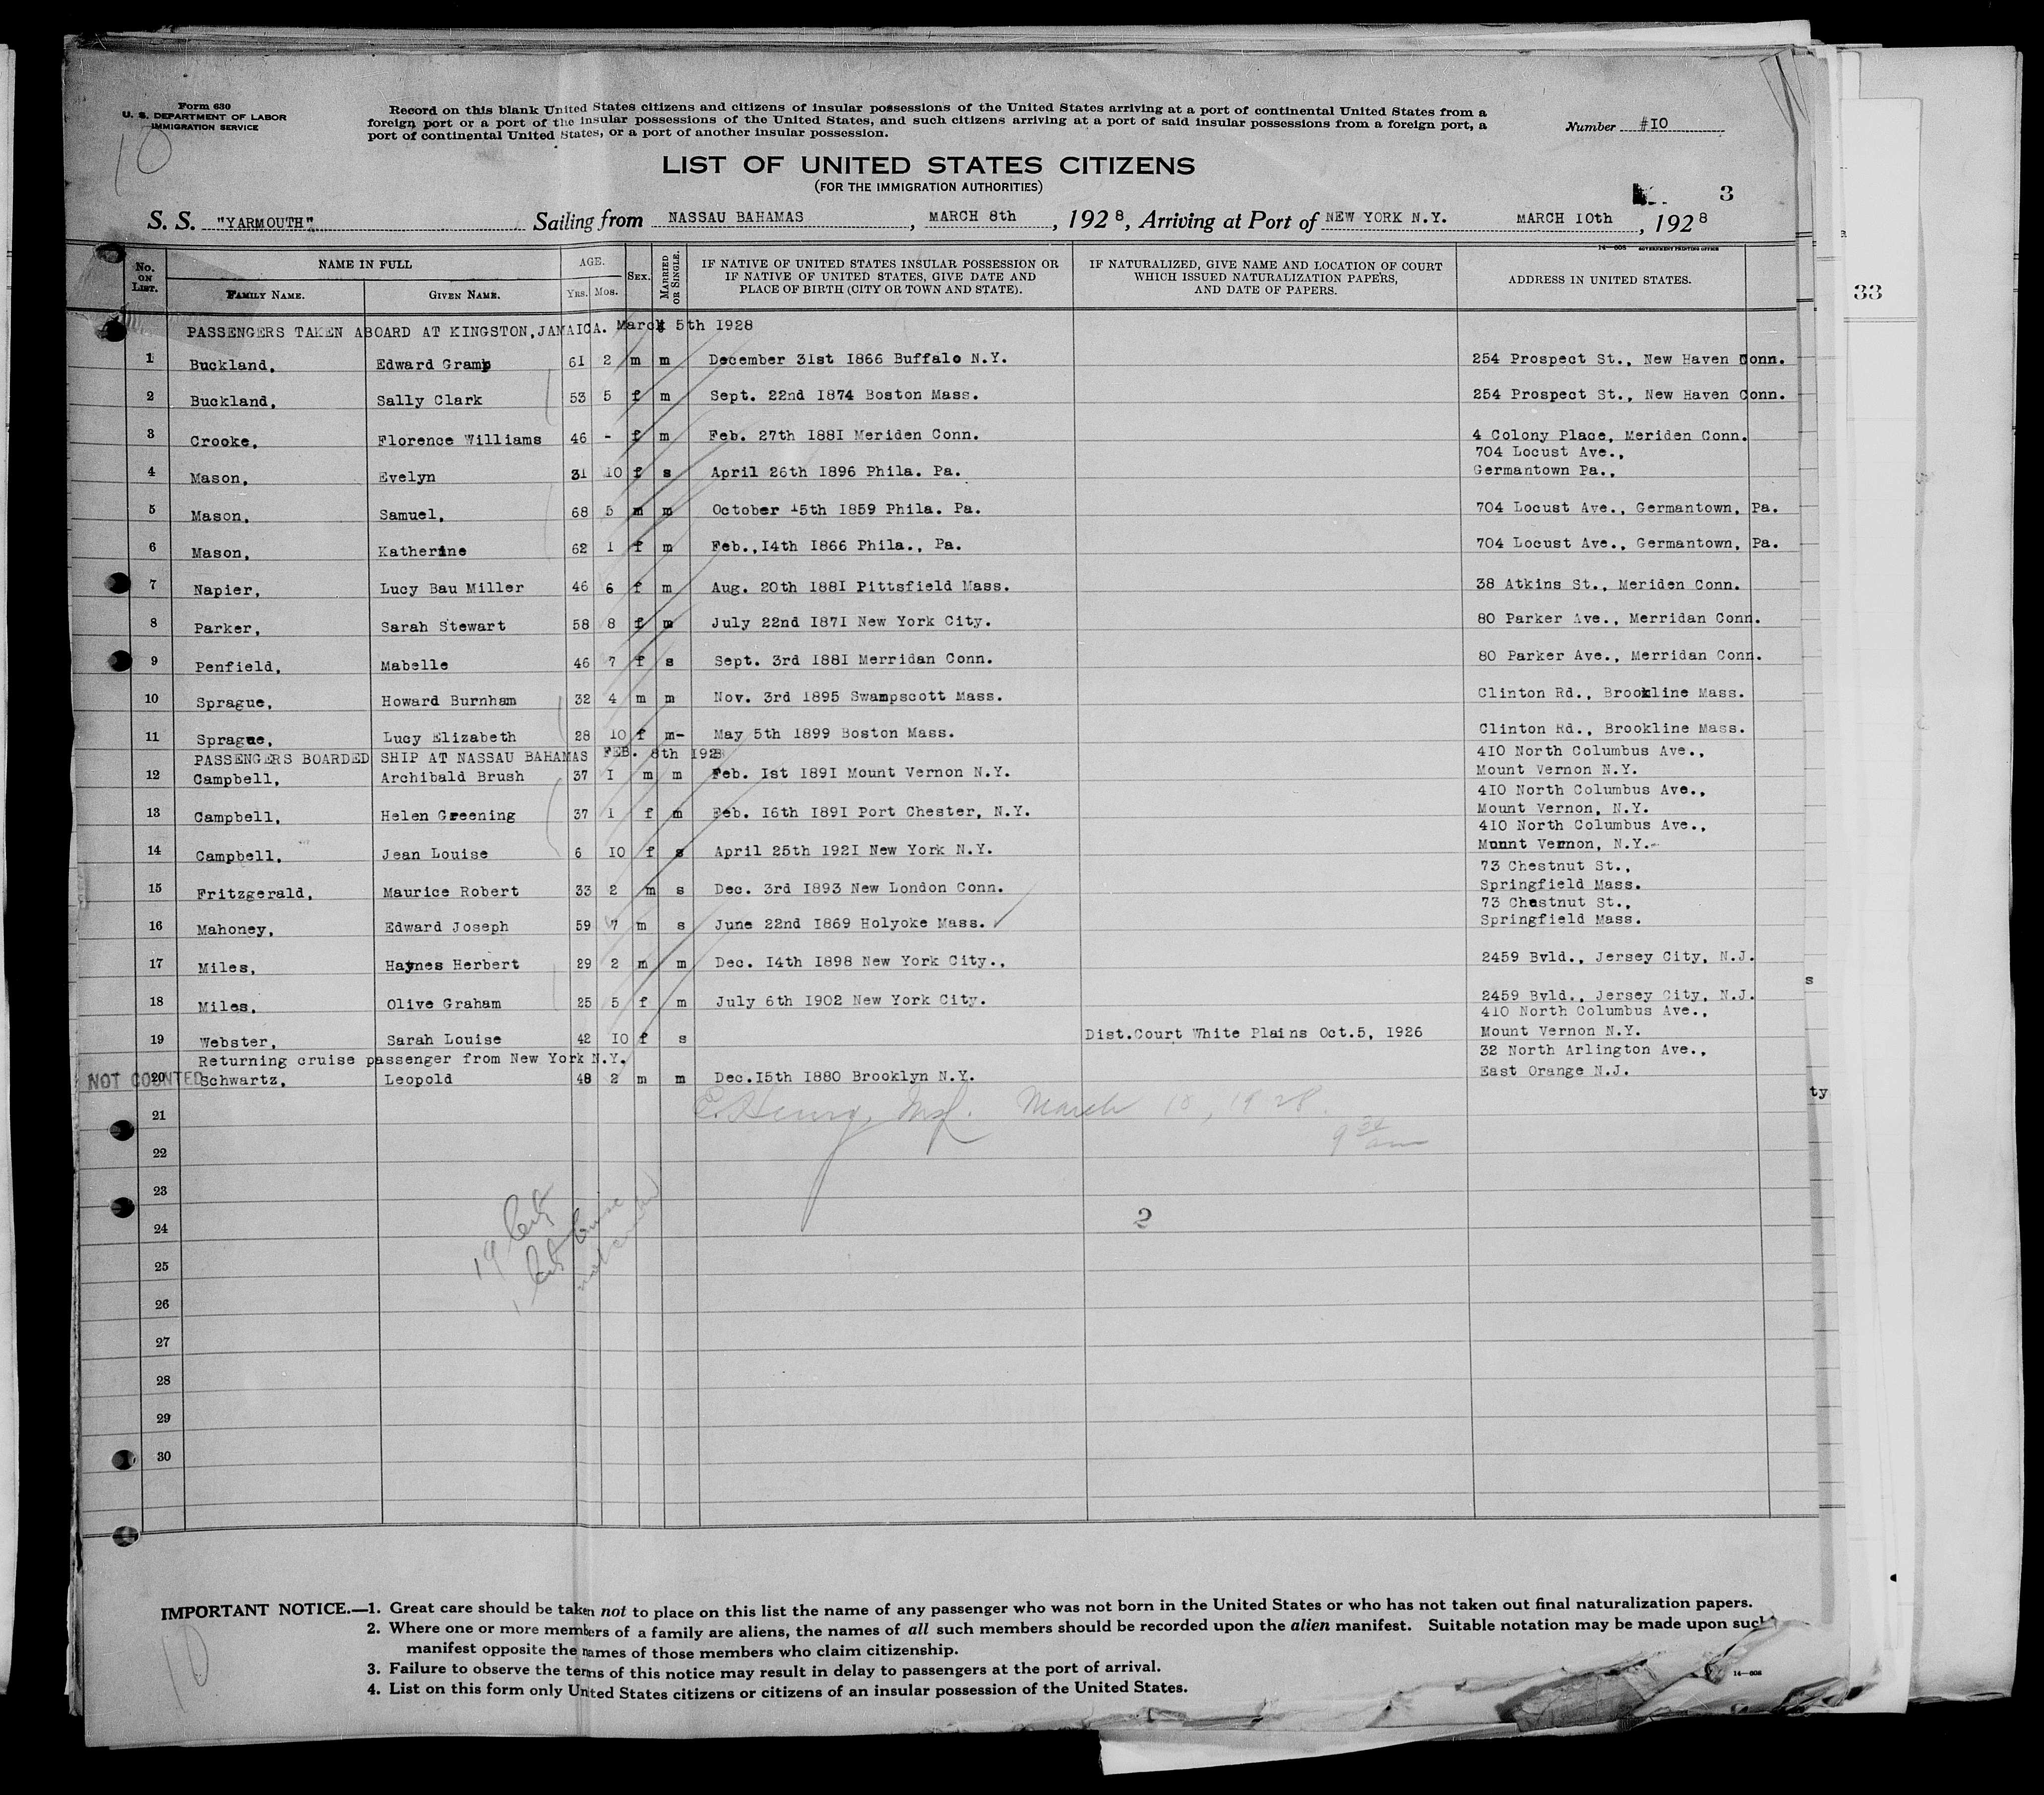 Form 630
U. S. DEPARTMENT OF LABOR
IMMIGRATION SERVICE
10
Record on this blank United States citizens and citizens of insular possessions of the United States arriving at a port of continental United States from a
foreign port or a port of the insular possessions of the United States, and such citizens arriving at a port of said insular possessions from a foreign port, a
port of continental United States, or a port of another insular possession.
Number #10
LIST OF UNITED STATES CITIZENS
(FOR THE IMMIGRATION AUTHORITIES)
3
S. S. "YARMOUTH" Sailing from NASSAU BAHAMAS, MARCH 8th, 1928, Arriving at Port of NEW YORK N.Y. MARCH 10th, 1928
14—608 GOVERNMENT PRINTING OFFICE
No. ON LIST. NAME IN FULL FAMILY NAME. GIVEN NAME. AGE. YRS. MOS. SEX. MARRIED OR SINGLE. IF NATIVE OF UNITED STATES INSULAR POSSESSION OR IF NATIVE OF UNITED STATES, GIVE DATE AND PLACE OF BIRTH (CITY OR TOWN AND STATE). IF NATURALIZED, GIVE NAME AND LOCATION OF COURT WHICH ISSUED NATURALIZATION PAPERS, AND DATE OF PAPERS. ADDRESS IN UNITED STATES.
33
PASSENGERS TAKEN ABOARD AT KINGSTON, JAMAICA. March 5th 1928
1 Buckland, Edward Gramp 61 2 m m December 31st 1866 Buffalo N.Y. 254 Prospect St., New Haven Conn.
2 Buckland, Sally Clark 53 5 f m Sept. 22nd 1874 Boston Mass. 254 Prospect St., New Haven Conn.
3 Crooke, Florence Williams 46 - f m Feb. 27th 1881 Meriden Conn. 4 Colony Place, Meriden Conn.
704 Locust Ave.,
4 Mason, Evelyn 31 10 f s April 26th 1896 Phila. Pa. Germantown Pa.,
5 Mason, Samuel, 68 5 m m October 15th 1859 Phila. Pa. 704 Locust Ave., Germantown, Pa.
6 Mason, Katherine 62 1 f m Feb.,14th 1866 Phila., Pa. 704 Locust Ave., Germantown, Pa.
7 Napier, Lucy Bau Miller 46 6 f m Aug. 20th 1881 Pittsfield Mass. 38 Atkins St., Meriden Conn.
8 Parker, Sarah Stewart 58 8 f m July 22nd 1871 New York City. 80 Parker Ave., Merridan Conn.
9 Penfield, Mabelle 46 7 f s Sept. 3rd 1881 Merridan Conn. 80 Parker Ave., Merridan Conn.
10 Sprague, Howard Burnham 32 4 m m Nov. 3rd 1895 Swampscott Mass. Clinton Rd., Brookline Mass.
11 Sprague, Lucy Elizabeth 28 10 f m- May 5th 1899 Boston Mass. Clinton Rd., Brookline Mass.
PASSENGERS BOARDED SHIP AT NASSAU BAHAMAS FEB. 8th 1928 410 North Columbus Ave.,
12 Campbell, Archibald Brush 37 1 m m Feb. 1st 1891 Mount Vernon N.Y. Mount Vernon N.Y.
410 North Columbus Ave.,
13 Campbell, Helen Greening 37 1 f m Feb. 16th 1891 Port Chester, N.Y. Mount Vernon, N.Y.
410 North Columbus Ave.,
14 Campbell, Jean Louise 6 10 f s April 25th 1921 New York N.Y. Munnt Vernon, N.Y.
73 Chestnut St.,
15 Fritzgerald, Maurice Robert 33 2 m s Dec. 3rd 1893 New London Conn. Springfield Mass.
73 Chestnut St.,
16 Mahoney, Edward Joseph 59 7 m s June 22nd 1869 Holyoke Mass. Springfield Mass.
17 Miles, Haynes Herbert 29 2 m m Dec. 14th 1898 New York City., 2459 Bvld., Jersey City, N.J.
s
18 Miles, Olive Graham 25 5 f m July 6th 1902 New York City. 2459 Bvld., Jersey City, N.J.
410 North Columbus Ave.,
19 Webster, Sarah Louise 42 10 f s Dist.Court White Plains Oct.5, 1926 Mount Vernon N.Y.
Returning cruise passenger from New York N.Y. 32 North Arlington Ave.,
NOT COUNTED 20 Schwartz, Leopold 48 2 m m Dec.15th 1880 Brooklyn N.Y. East Orange N.J.
ty
21 E. Henry, Insp. March 10, 1928.
9 am
22
23
24 2
19
25
26
27
28
29
30
IMPORTANT NOTICE.—1. Great care should be taken not to place on this list the name of any passenger who was not born in the United States or who has not taken out final naturalization papers.
2. Where one or more members of a family are aliens, the names of all such members should be recorded upon the alien manifest. Suitable notation may be made upon such
manifest opposite the names of those members who claim citizenship.
3. Failure to observe the terms of this notice may result in delay to passengers at the port of arrival.
14—608
4. List on this form only United States citizens or citizens of an insular possession of the United States.
10